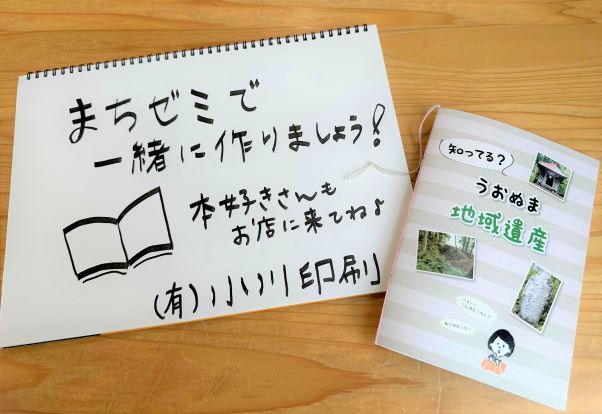 まちゼミで
一緒に作りましょう！
本好きさんも
お店に来てねょ
(有)小いり印刷
知ってる？
うおぬま
地域遺産